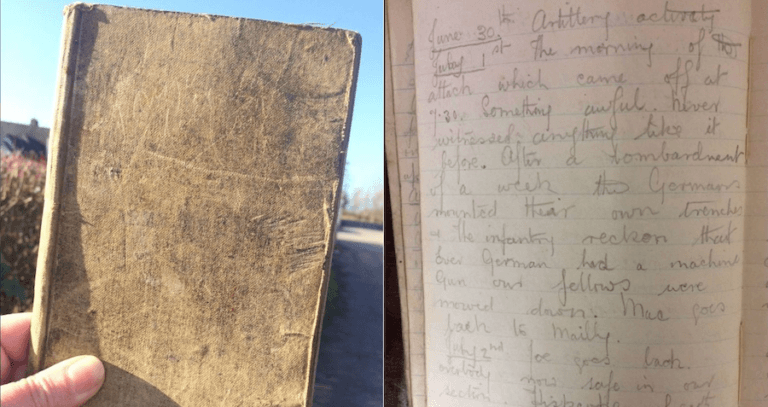 June 30.th Artillery activity
July 1st The morning of the
attack which came off at
7.30. Something awful. Never
witnessed anything like it
before. After a bombardment
of a week the Germans
mounted their own trenches
& the infantry reckon that
ever German had a machine
Gun our fellows were
mowed down. Mac goes
back to Mailly.
July 2nd Joe goes back.
everybody now safe in our
section.